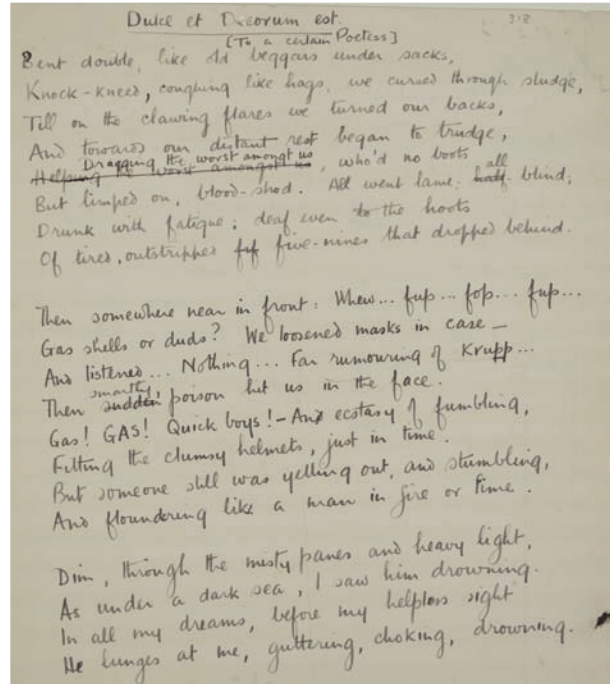 Dulce et Decorum est.
318
[To a certain Poetess]
Bent double, like old beggars under sacks,
Knock-kneed, coughing like hags, we cursed through sludge,
Till on the clawing flares we turned our backs,
And towards our distant rest began to trudge,
Dragging the worst amongst us
Helping the worst amongst us, who'd no boots
But limped on, blood-shod. All went lame; half all blind;
Drunk with fatigue; deaf even to the hoots
Of tired, outstripped fif five-nines that dropped behind.
Then somewhere near in front: Whew... fup... fop... fup...
Gas shells or duds? We loosened masks in case —
And listened... Nothing... Far rumouring of Krupp...
smartly,
Then sudden poison hit us in the face.
Gas! GAS! Quick boys! — An ecstasy of fumbling,
Fitting the clumsy helmets, just in time.
But someone still was yelling out, and stumbling,
And floundering like a man in fire or lime.
Dim, through the misty panes and heavy light,
As under a dark sea, I saw him drowning.
In all my dreams, before my helpless sight
He lunges at me, guttering, choking, drowning.